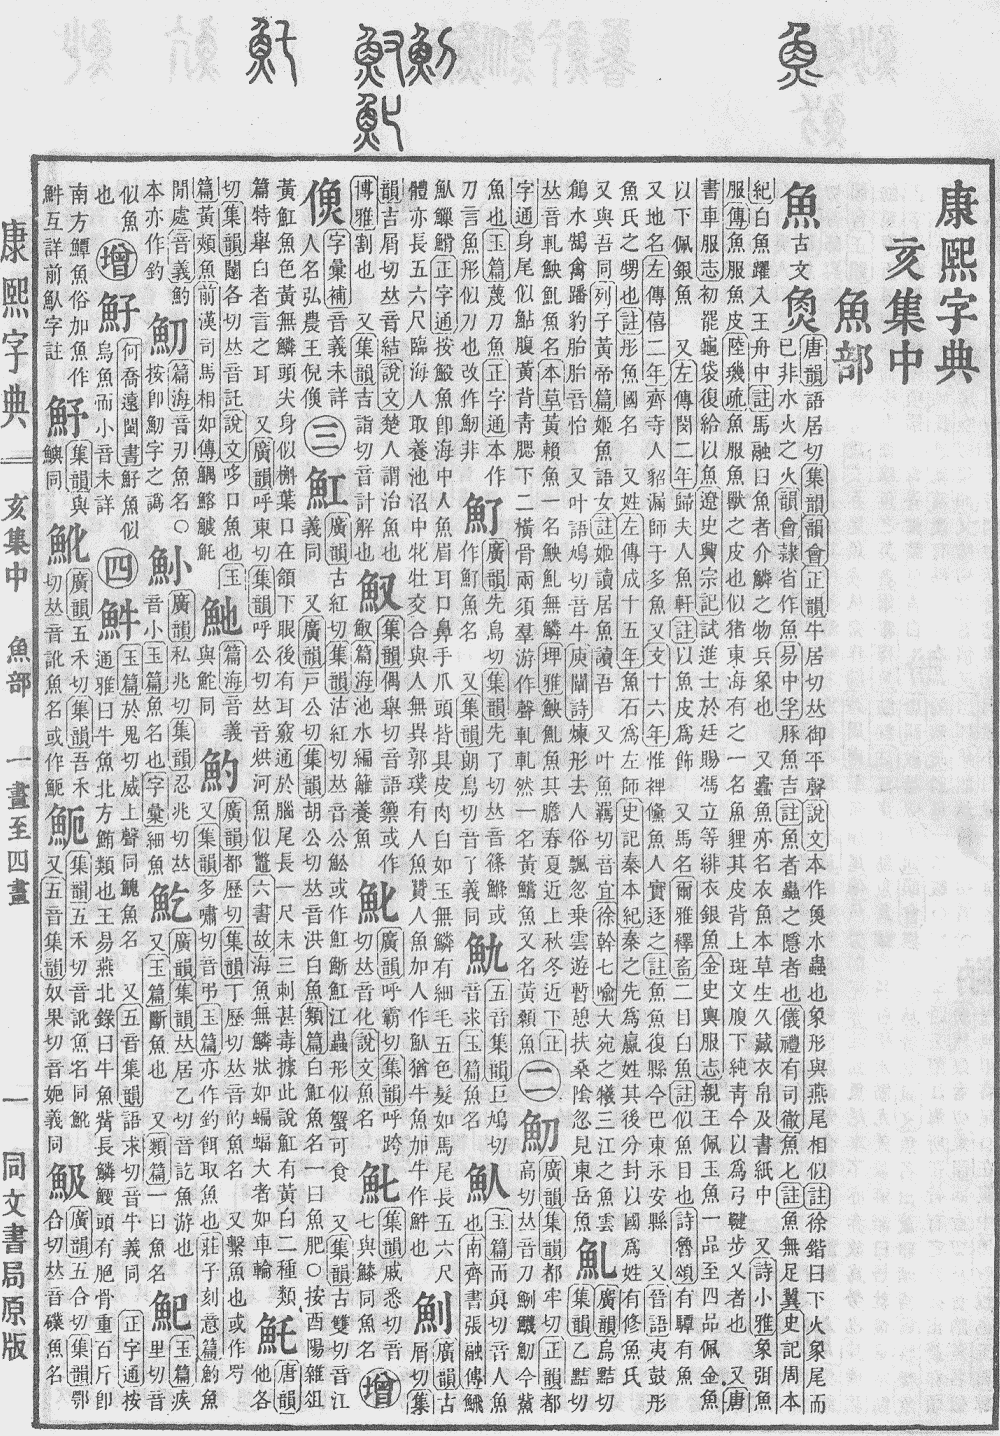 康熙字典
亥集中
魚部
魚古文𤋳
唐韻語居切集韻韻會正韻牛居切𠀤御平聲說文本作𤋳水蟲也象形與燕尾相似註徐鍇曰下火象尾而
已非水火之火韻會隸省作魚易中孚豚魚吉註魚者蟲之隱者也儀禮有司徹魚匕註魚無足翼史記周本
紀白魚躍入王舟中註馬融曰魚者介鱗之物兵象也 又蠹魚亦名衣魚本草生久藏衣帛及書紙中 又詩小雅象弭魚
服傳魚服魚皮陸璣疏魚服魚獸之皮也似猪東海有之一名魚貍其皮背上斑文腹下純靑今以爲弓鞬步叉者也 又唐
書車服志初罷龜袋復給以魚遼史興宗記試進士於廷賜馮立等緋衣銀魚金史輿服志親王佩玉魚一品至四品佩金魚
以下佩銀魚 又左傳閔二年歸夫人魚軒註以魚皮爲飾 又馬名爾雅釋畜二目白魚註似魚目也詩魯頌有驔有魚
又地名左傳僖二年齊寺人貂漏師于多魚又文十六年惟裨儵魚人實逐之註魚魚復縣今巴東永安縣 又晉語夷鼓彤
魚氏之甥也註彤魚國名 又姓左傳成十五年魚石爲左師史記秦本紀秦之先爲嬴姓其後分封以國爲姓有修魚氏
又與吾同列子黃帝篇姬魚語女註姬讀居魚讀吾 又叶魚羈切音宜徐幹七喻大宛之犧三江之魚雲
鶬水鵠禽蹯豹胎胎音怡 又叶語鳩切音牛庾闡詩煉形去人俗飄忽乗雲遊暫憩扶桑陰忽見東岳魚
廣韻烏黠切
集韻乙黠切
𠀤音軋魚名本草黃顙魚一名無鱗埤雅魚其膽春夏近上秋冬近下正
字通身尾似鮎腹黃背靑腮下二橫骨兩須羣游作聲軋軋然一名黃鱨魚又名黃頰魚
二
魛
廣韻集韻都牢切正韻都
高切𠀤音刀魛鱴魛今鮆
魚也玉篇鱴刀魚正字通本作
刀言魚形似刀也改作魛非
廣韻先鳥切集韻先了切𠀤音篠鰷或
作魚名 又集韻朗鳥切音了義同
五音集韻巨鳩切
音求玉篇魚名
魜
玉篇而眞切音人魚
也南齊書張融傳
正字通按魜魚卽海中人魚眉耳口鼻手爪頭皆具皮肉白如玉無鱗有細毛五色髮如馬尾長五六尺
體亦長五六尺臨海人取養池沼中牝牡交合與人無異郭璞有人魚贊人魚加人作魜猶牛魚加牛作也
魝
廣韻古
屑切集
韻吉屑切𠀤音結說文楚人謂治魚也
博雅割也 又集韻吉詣切音計解也
集韻偶舉切音語籞或作
篇海池水編籬養魚
魤
廣韻呼霸切集韻呼跨
切𠀤音化說文魚名
集韻戚悉切音
七與同魚名
增
字彙補音義未詳
人名弘農王倪
三
魟
廣韻古紅切集韻沽紅切𠀤音公或作魟魟江蟲形似蟹可食 又集韻古雙切音江
義同 又廣韻戸公切集韻胡公切𠀤音洪白魚類篇白魟魚名一曰魚肥○按酉陽雜俎
黃魟魚色黃無鱗頭尖身似槲葉口在頷下眼後有耳竅通於腦尾長一尺末三刺甚毒據此說魟有黃白二種類
篇特舉白者言之耳 又廣韻呼東切集韻呼公切𠀤音烘河魚似鼈六書故海魚無鱗狀如蝙蝠大者如車輪
魠
唐韻
他各
切集韻闥各切𠀤音託說文哆口魚也玉
篇黃頰魚前漢司馬相如傳鰅鰫鰬魠
篇海音義
與鮀同
魡
廣韻都歷切集韻丁歷切𠀤音的魚名 又繫魚也或作䍜
又集韻多嘯切音弔玉篇亦作釣餌取魚也莊子刻意篇魡魚
閒處音義魡
本亦作釣
篇海音刃魚名○
按卽魛字之譌
廣韻私兆切集韻忍兆切𠀤
音小玉篇魚名也字彙細魚
廣韻集韻𠀤居乙切音訖魚游也
又玉篇斷魚也 又類篇一曰魚名
魢
玉篇疾
里切音
似魚
也
增
何喬遠閩書魚似
烏魚而小音未詳
四
玉篇於鬼切威上聲同魚名 又五音集韻語求切音牛義同 正字通按
通雅曰牛魚北方鮪類也王易燕北錄曰牛魚觜長鱗頭有脃骨重百斤卽
南方鱏魚俗加魚作
互詳前魜字註
魣
集韻與
鱮同
魤
廣韻五禾切集韻吾禾
切𠀤音訛魚名或作
集韻五禾切音訛魚名同魤
又五音集韻奴果切音妮義同
魥
廣韻五合切集韻鄂
合切𠀤音礏魚名
康熙字典
亥集中 魚部 一畫至四畫
一
同文書局原版